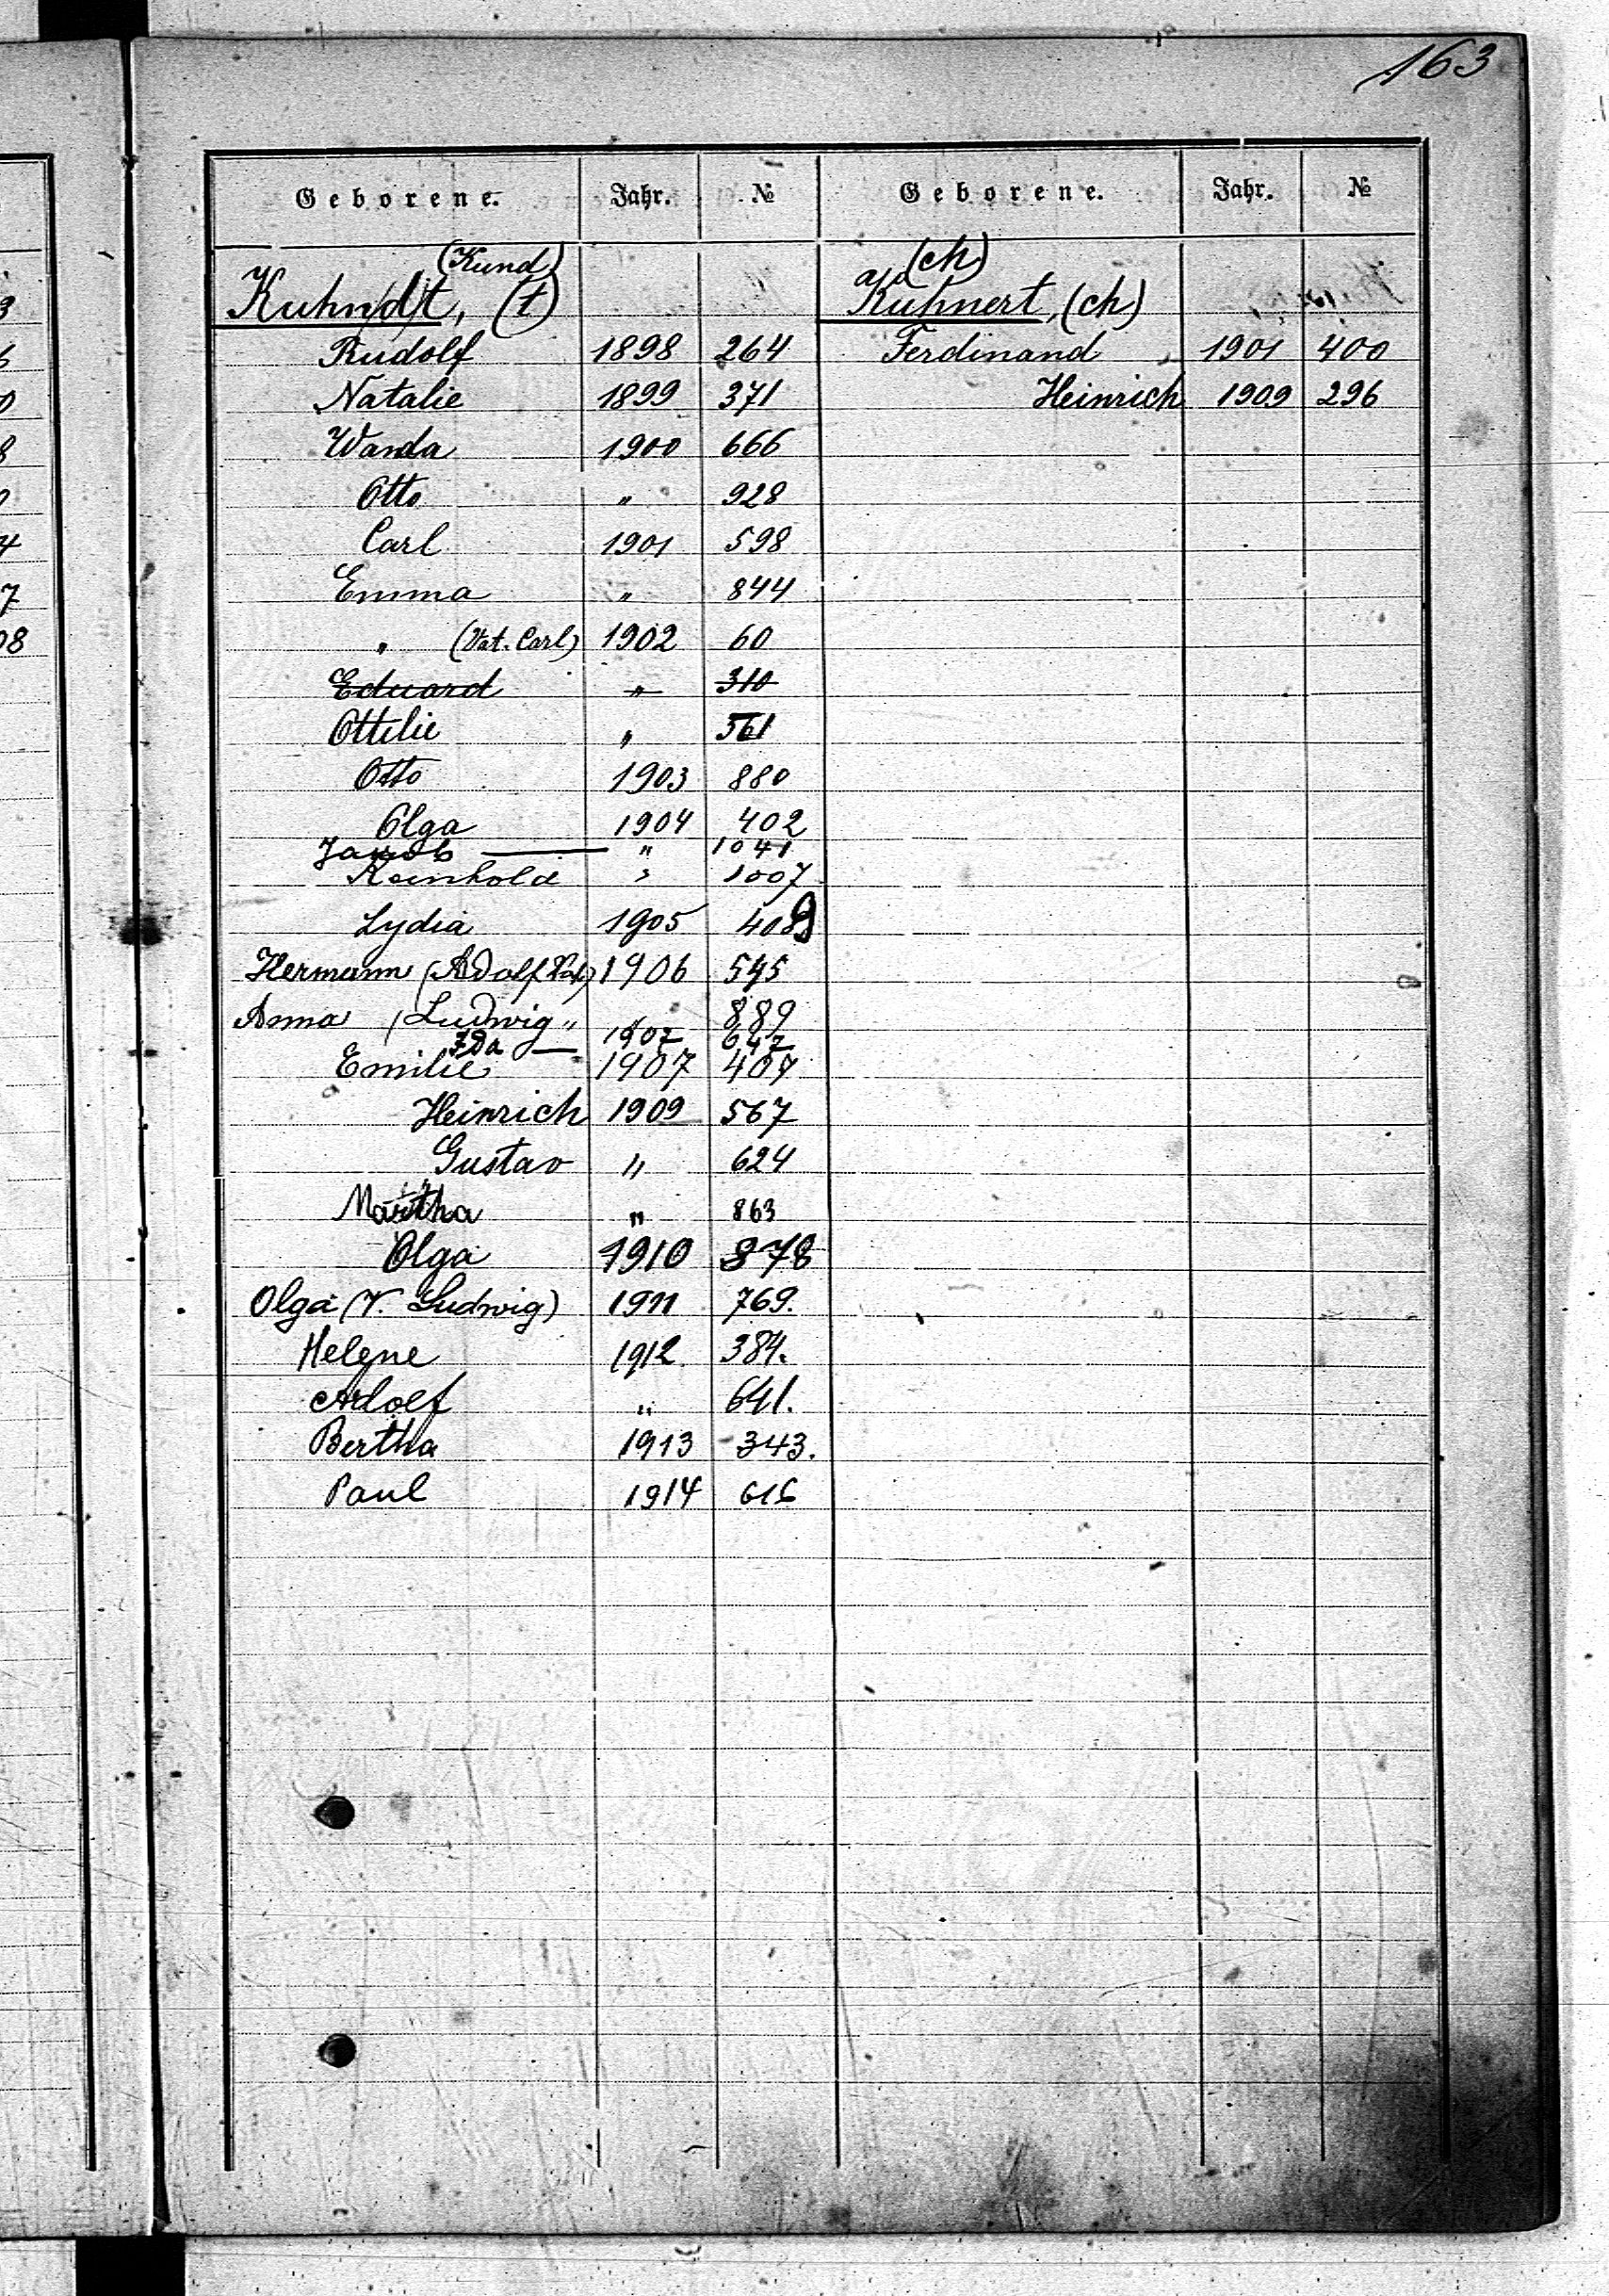 163
Geborene. Jahr. № Geborene. Jahr. №
(Kund)
Kuhn/d/t, (t)
Rudolf 1898 264
Natalie 1899 371
Wanda 1900 666
Otto " 928
Carl 1901 598
Emma " 844
" (Vat. Carl) 1902 60
Eduard " 310
Ottilie " 561
Otto 1903 880
Olga 1904 402
Jakob — " 1041
Reinhold " 1007
Lydia 1905 409
Hermann (Adolf Vat.) 1906 545
Anna (Ludwig " " 889
Ida — 1907 647
Emilie 1907 407
Heinrich 1909 567
Gustav " 624
Martha " 863
Olga 1910 878
Olga (V. Ludwig) 1911 769.
Helene 1912 384.
Adolf " 641.
Bertha 1913 343.
Paul 1914 616
(ch)
Kuhnert, (ch)
Ferdinand 1901 400
Heinrich 1909 296
3
6
0
8
0
4
7
08